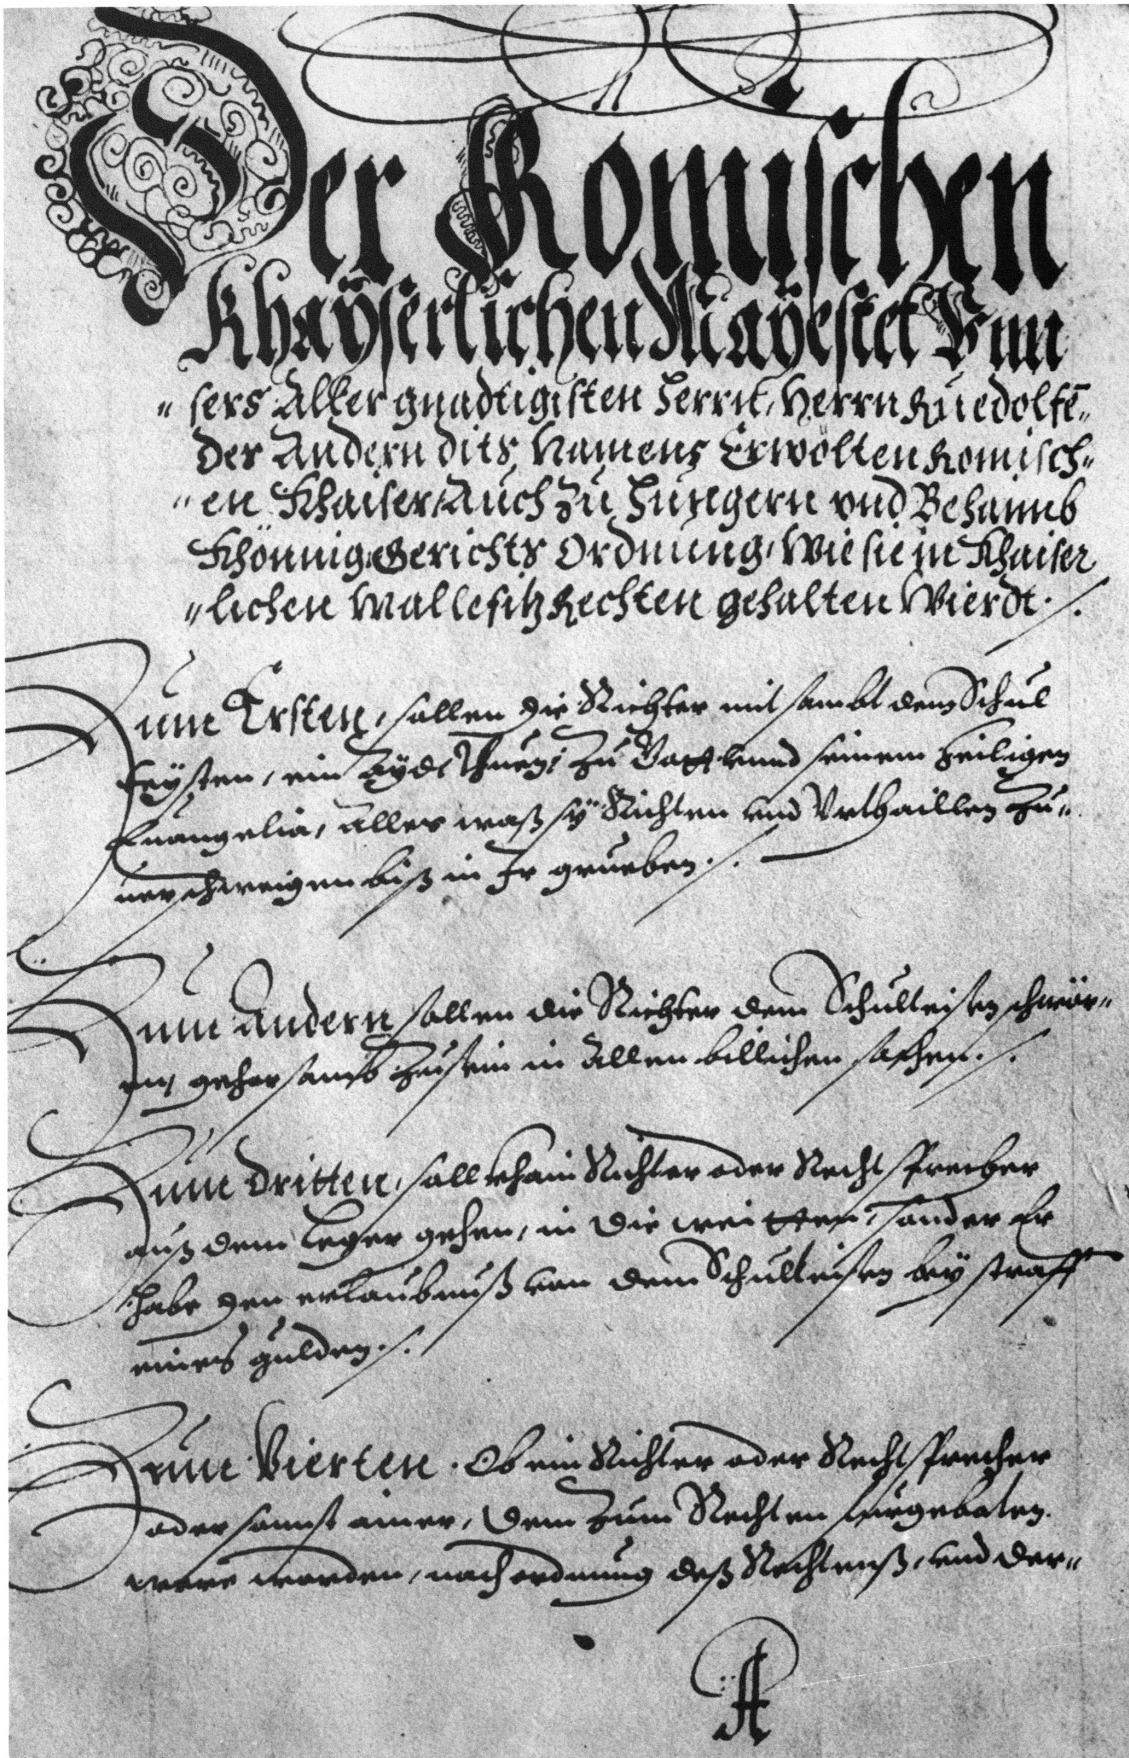 Der Romischen
Khaÿserlichen Maÿestet Vnn
"sers Aller gnadtigisten Herrn, Herrn Ruedolfē"
der Andern dits Namens Erwölten Romisch"
"en Khaiser, Auch Zu Hungern vnd Behaimb
Khönnig, Gerichts Ordnung, Wie sie in Khaiser
"lichen Mallefitz Rechten gehalten Wierdt ./.
Zum Ersten, sollen die Richter mit sambt dem Schul
theÿsten, ein Aÿdt Thuen, Zu Gott vnnd seinem heiligen
Euangelia, Alles waß sÿ Richten vnd Vrthaillen Zu"
uerschweigen biß in Ir grueben ./.
Zum Andern sollen die Richter dem Schulteisen schwör"
en, gehorsamb Zu sein in Allen billichen sachen ./.
Zum Dritten, soll khain Richter oder Recht sprecher
auß dem Leger gehen, in die weitten, sonder Er
habe den erlaubnuß von dem Schulteisen beÿ straff
eines gulden ./.
Zum Vierten. Ob ein Richter oder Recht sprecher
oder sonnst ainer, dem Zum Rechten furgeboten
were worden, nach ordnung deß Rechtenß, vnd der"
A